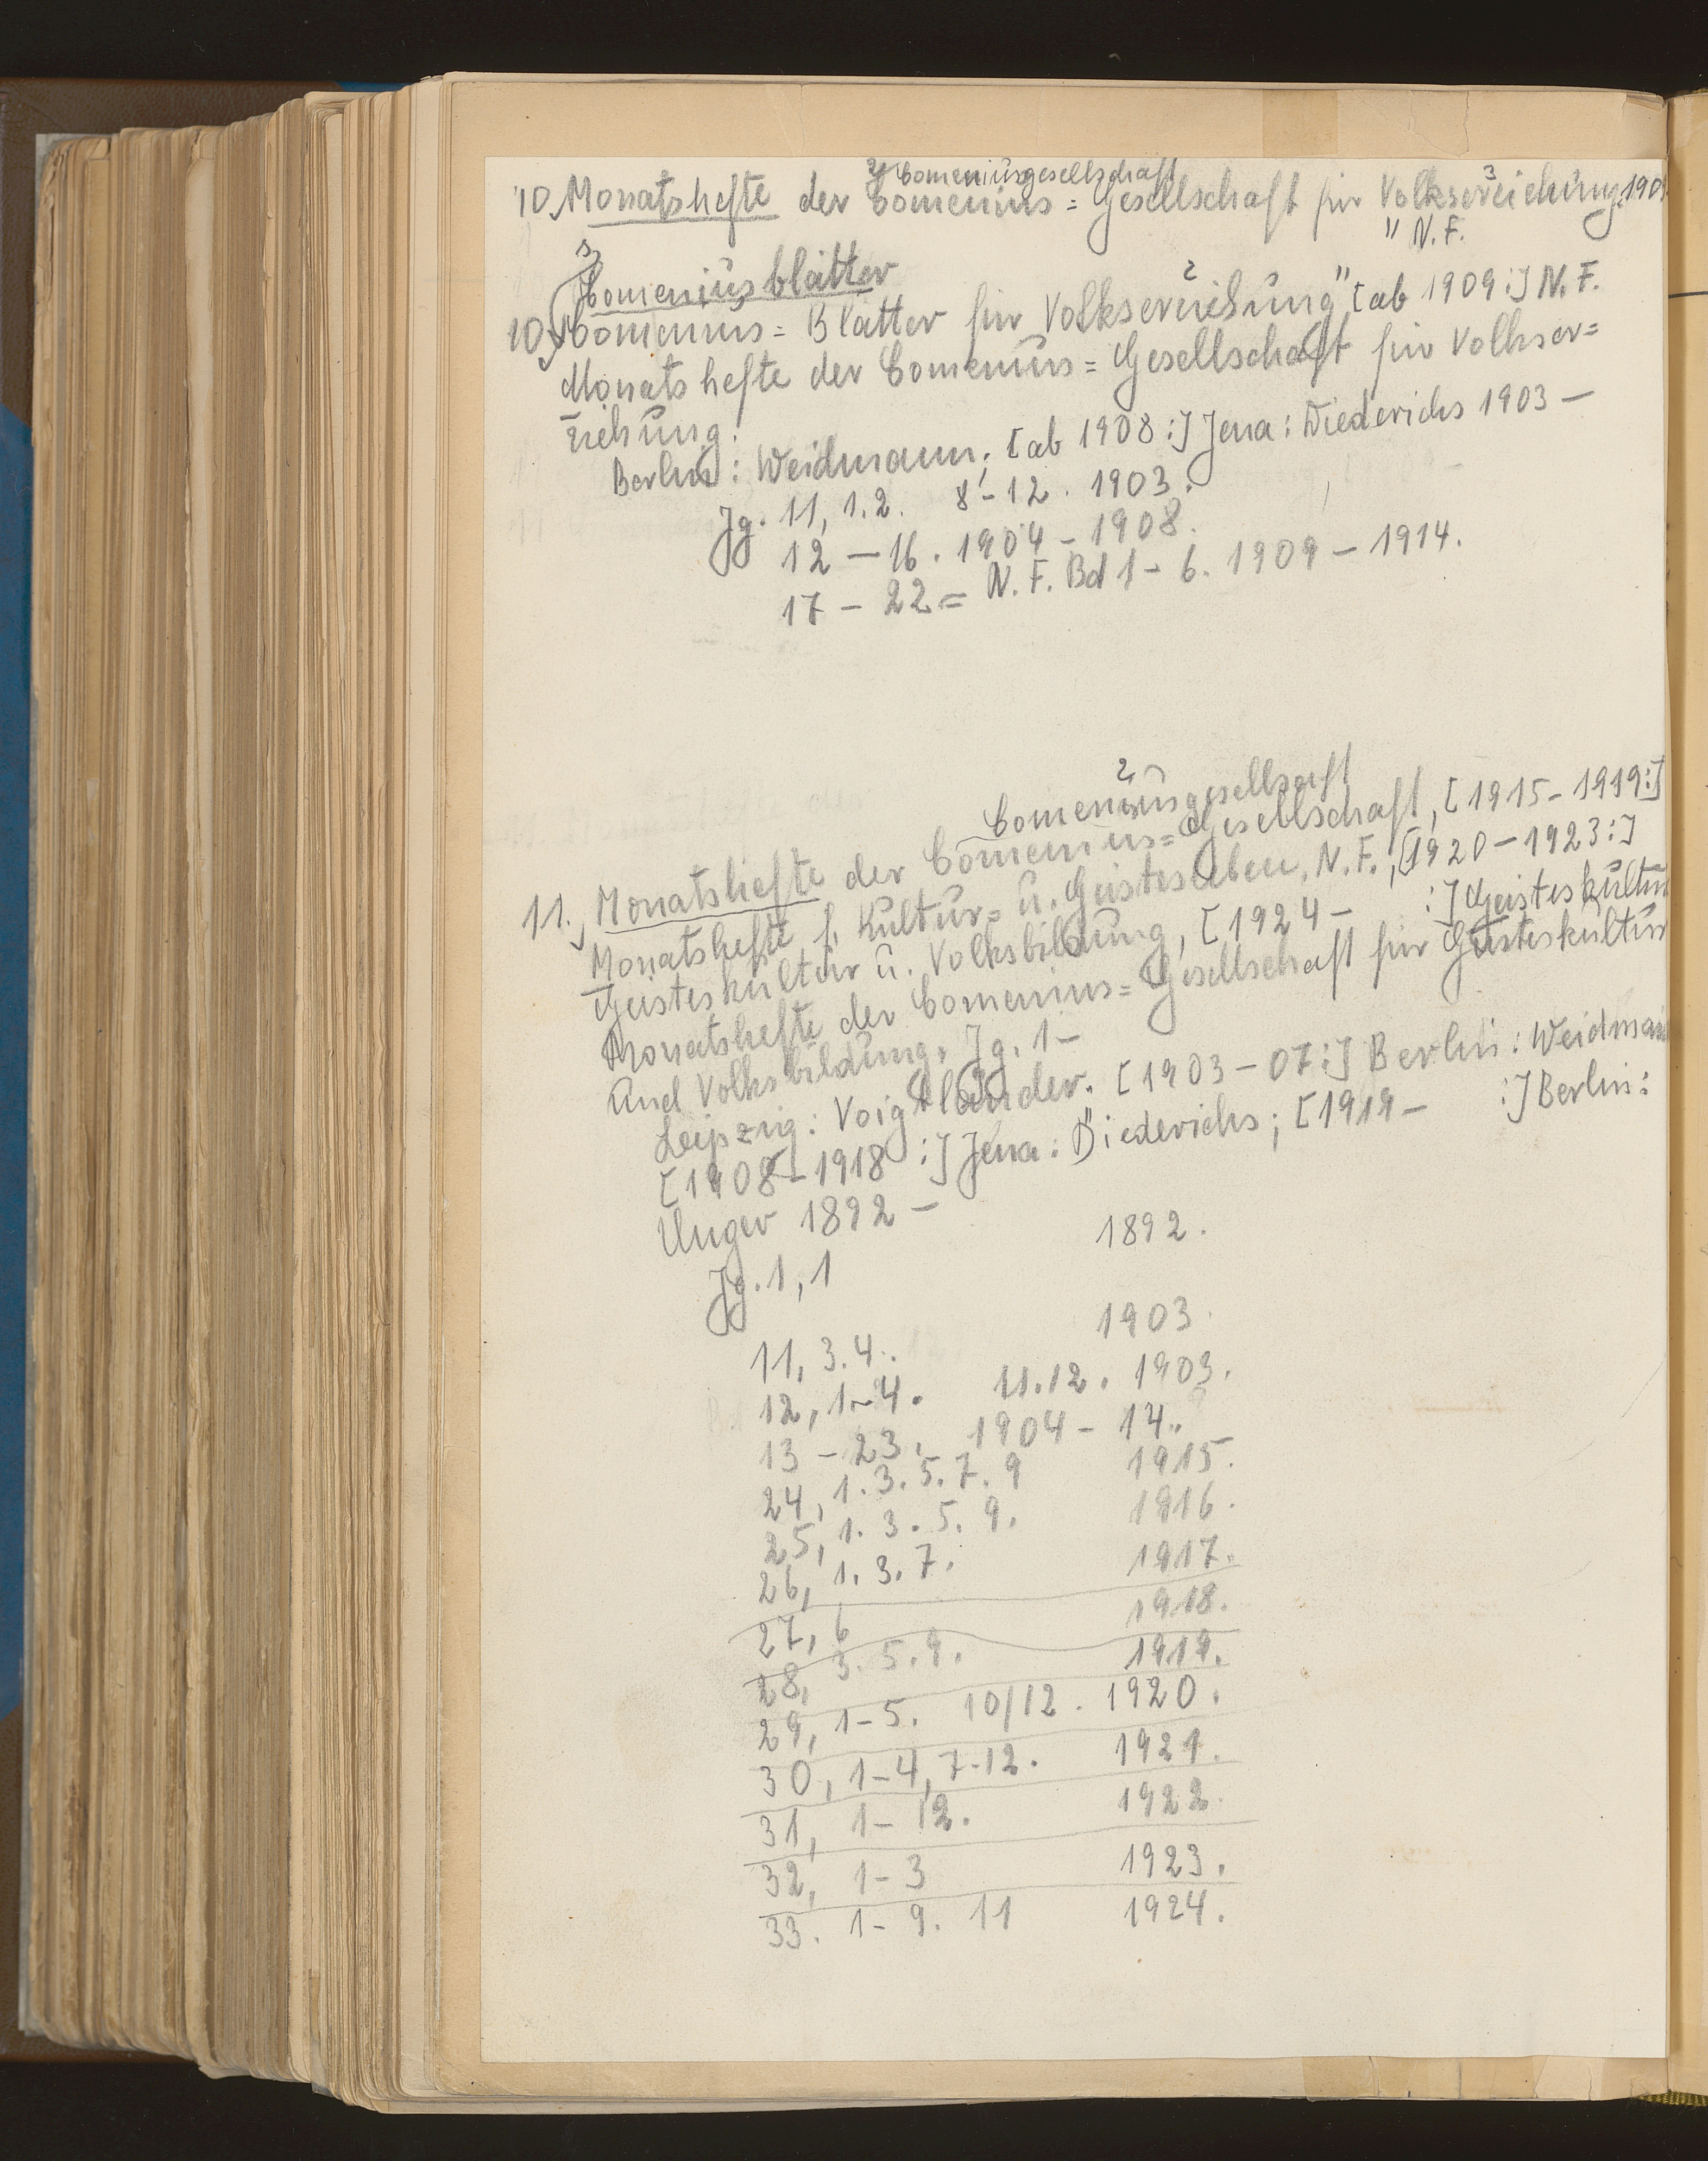 2) Comeniusgesellschaft 3
10, Monatshefte der Comenius=Gesellschaft für Volkserziehung. 190
" N. F.
s) Comeniusblätter
10, Comenius=Blätter für Volkserziehung" [ab 1909:] N. F.
2
Monatshefte der Comenius=Gesellschaft für Volkser=
ziehung.
Berlin: Weidmann; [ab 1908:] Jena: Diederichs 1903 –
Jg. 11, 1.2. 8 – 12. 1903.
12 – 16. 1904 – 1908.
17 – 22 = N. F. Bd 1 – 6. 1909 – 1914.
2
Comeniusgesellsaft
11., Monatshefte der Comenius=Gesellschaft, [1915 – 1919:]
Monatshefte f. Kultur= u. Geistesleben, N. F., [1920 – 1923:]
Geisteskultur u. Volksbildung, [1924 – :] Geisteskultur
Monatshefte der Comenius=Gesellschaft für Geisteskultur
und Volksbildung. Jg. 1 –
Leipzig: Voigtländer. [1903 – 07:] Berlin: Weidmann
[1908 – 1918:] Jena: Diederichs; [1919 – :] Berlin:
Unger 1892 –
Jg. 1, 1 1892.
11, 3.4. 1903.
12, 1–4. 11.12. 1903.
13 – 23. 1904 – 14.
24, 1.3.5.7.9 1915.
25, 1.3.5.9. 1916.
26, 1.3.7. 1917.
27, 6 1918.
28, 3.5.9. 1919.
29, 1–5. 10/12. 1920.
30, 1–4, 7-12. 1921.
31, 1–12. 1922.
32, 1–3 1923.
33. 1–9. 11 1924.